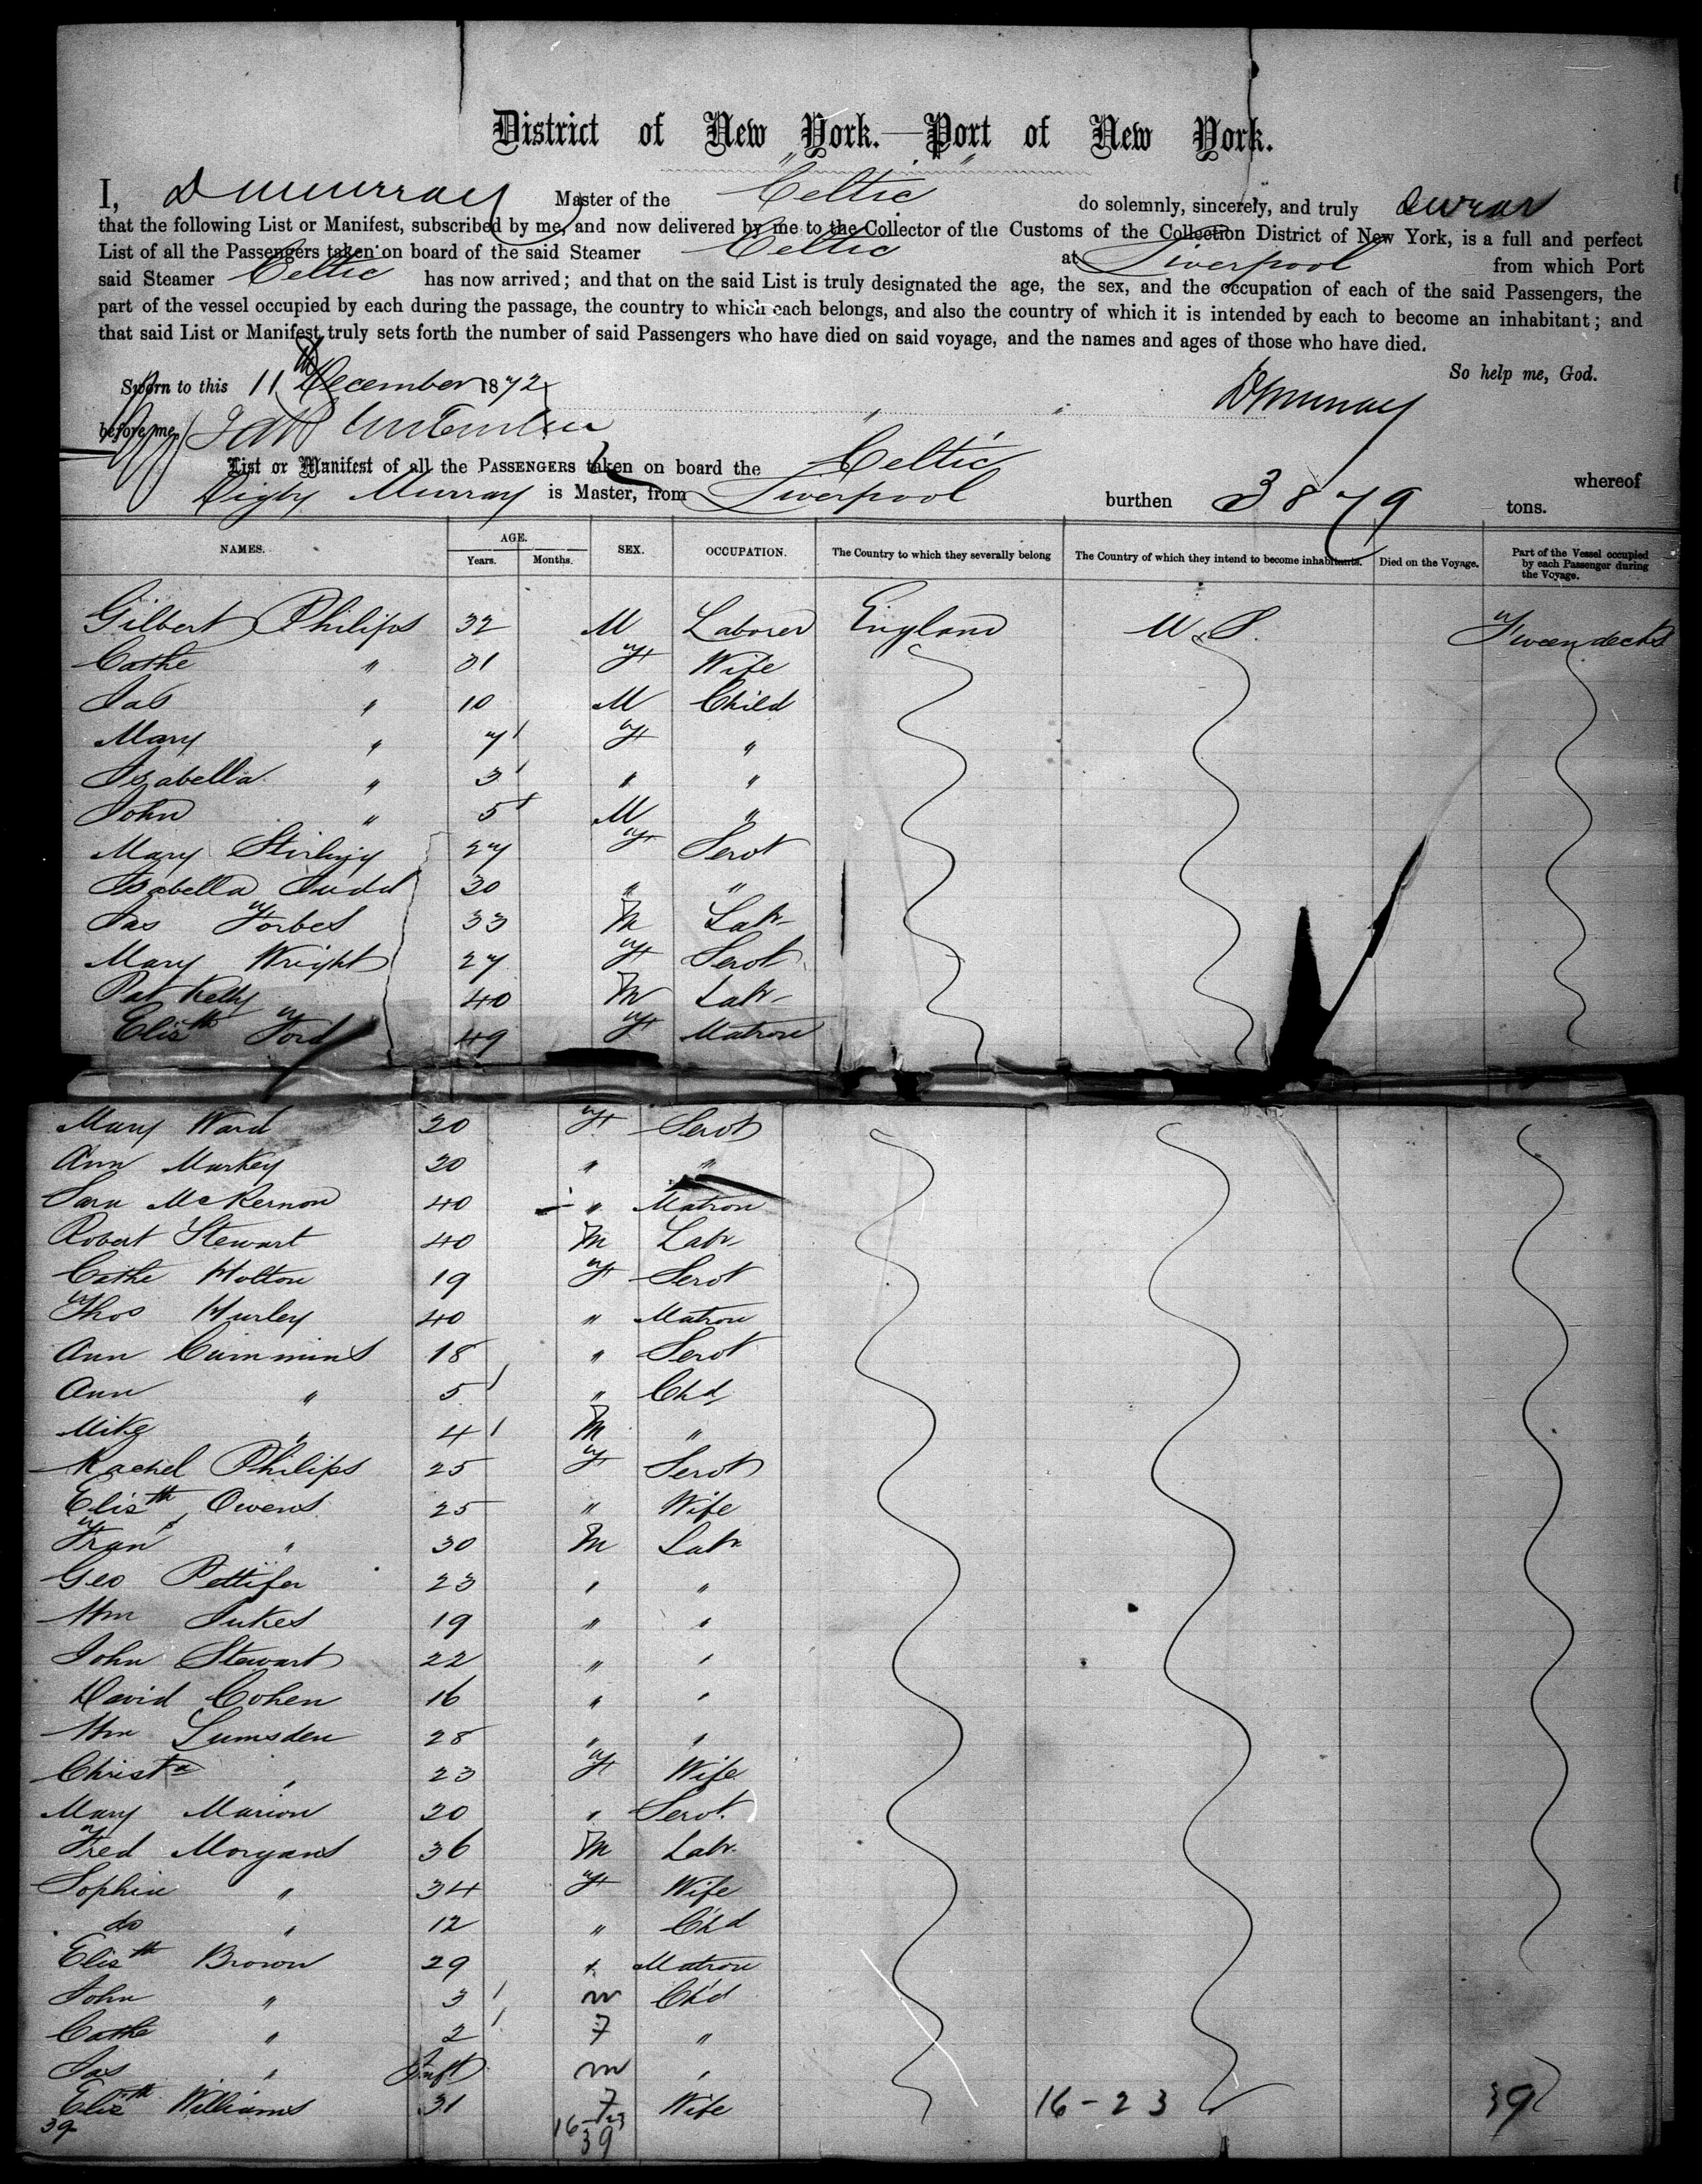 District of New York.—Port of New York.
I, D Murray Master of the "Celtic" do solemnly, sincerely, and truly swear
that the following List or Manifest, subscribed by me, and now delivered by me to the Collector of the Customs of the Collection District of New York, is a full and perfect
List of all the Passengers taken on board of the said Steamer Celtic at Liverpool from which Port
said Steamer Celtic has now arrived; and that on the said List is truly designated the age, the sex, and the occupation of each of the said Passengers, the
part of the vessel occupied by each during the passage, the country to which each belongs, and also the country of which it is intended by each to become an inhabitant; and
that said List or Manifest truly sets forth the number of said Passengers who have died on said voyage, and the names and ages of those who have died.
So help me, God.
Sworn to this 11th December 1872 D Murray
before me,
List or Manifest of all the PASSENGERS taken on board the Celtic whereof
Digby Murray is Master, from Liverpool burthen 3879 tons.
NAMES. AGE. Years. Months. SEX. OCCUPATION. The Country to which they severally belong The Country of which they intend to become inhabitants. Died on the Voyage. Part of the Vessel occupied by each Passenger during the Voyage.
Gilbert Philips 32 M Laborer England U.S. Tweendecks
Cathe " 31 F Wife
Jas " 10 M Child
Mary " 7 F "
Isabella " 3 " "
John " 5 M "
Mary Stirling 27 F Servt
Isabella Judd 30 " "
Jas Forbes 33 M Labr
Mary Wright 27 F Servt
Pat Kelly 40 M Labr
Elisth Ford 49 F Matron
Mary Ward 20 F Servt
Ann Markey 20 " "
Sara McKernon 40 " Matron
Robert Stewart 40 M Labr
Cathe Holton 19 F Servt
Thos Hurley 40 " Matron
Ann Cummins 18 " Servt
Ann " 5 " Chd
Mike " 4 M "
Rachel Philips 25 F Servt
Elisth Owens 25 " Wife
Frans " 30 M Labr
Geo Pettifer 23 " "
Wm Jukes 19 " "
John Stewart 22 " "
David Cohen 16 " "
Wm Lumsden 28 " "
Christa " 23 F Wife
Mary Marion 20 " Servt
Fred Morgans 36 M Labr
Sophia " 34 F Wife
do " 12 " Chd
Elisth Brown 29 " Matron
John " 3 m Chd
Cathe " 2 F "
Jas " Inft m "
Elisth Williams 31 F Wife
39 16-23 39 16-23 39